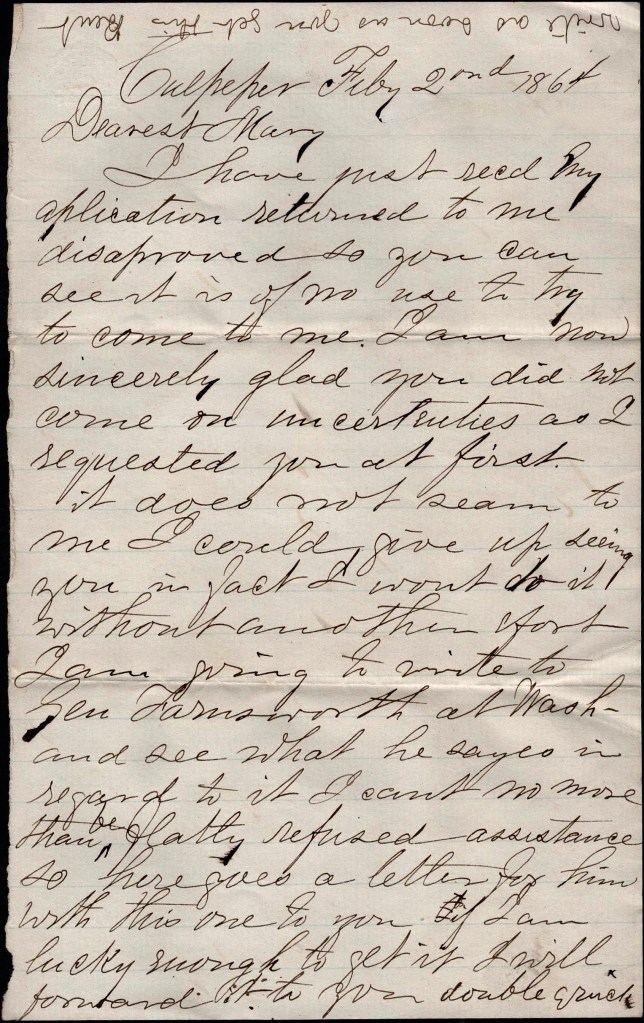 write as soon as you get this Bent
Culpeper Feby 2ond 1864
Dearest Mary
I have just recd my
aplication returned to me
disaproved so you can
see it is of no use to try
to come to me. I am now
sincerely glad you did not
come on uncertenties as I
requested you at first.
it does not seam to
me I could give up seeing
you in fact I wont do it
without another efort
I am going to write to
Gen Farnsworth at Wash-
and see what he sayes in
regard to it I cant no more
than be flatly refused assistance
so here goes a letter for him
with this one to you If I am
lucky enough to get it I will
forward it to you double quick